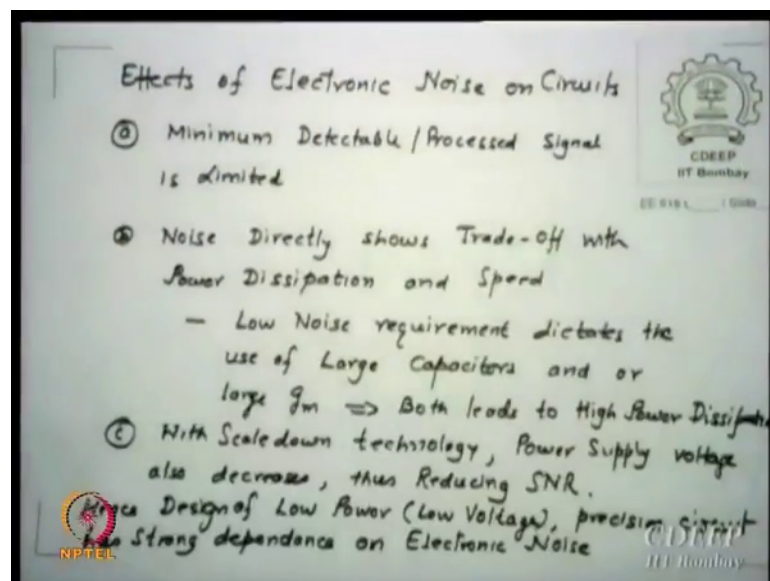 Effects of Electronic Noise on Circuits
ⓐ Minimum Detectable / Processed Signal
is Limited
ⓑ Noise Directly shows Trade-off with
Power Dissipation and Speed
— Low Noise requirement dictates the
use of Large Capacitors and or
large gm ⇒ Both leads to High Power Dissipation
ⓒ With Scaledown technology, Power Supply voltage
also decreases, thus Reducing SNR.
Hence Design of Low Power (Low Voltage), precision circuit
has Strong dependence on Electronic Noise
CDEEP
IIT Bombay
Slide
NPTEL
CDEEP
IIT Bombay